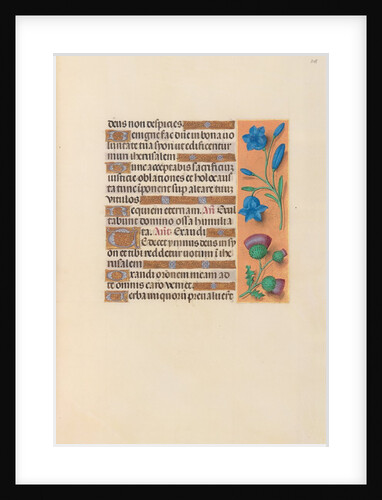 deus non despicies
Benigne fac dñe in bona uo
luntate tua syon ut edificentur
muri iherusalem
Tunc acceptabis sacrificiũ
iusticie oblationes et holocaus
ta tunc iponent sup altare tuũ
vitulos
Requiem eternam. Añ. Exul
tabunt domino ossa humilia
ta. Añ. Exaudi
Te decet ymnus deus in sy
on et tibi reddetur uotum ĩ ihe
rusalem
Exaudi orationem meam ad
te omnis caro veniet
Verba iniquorũ preualuerũt